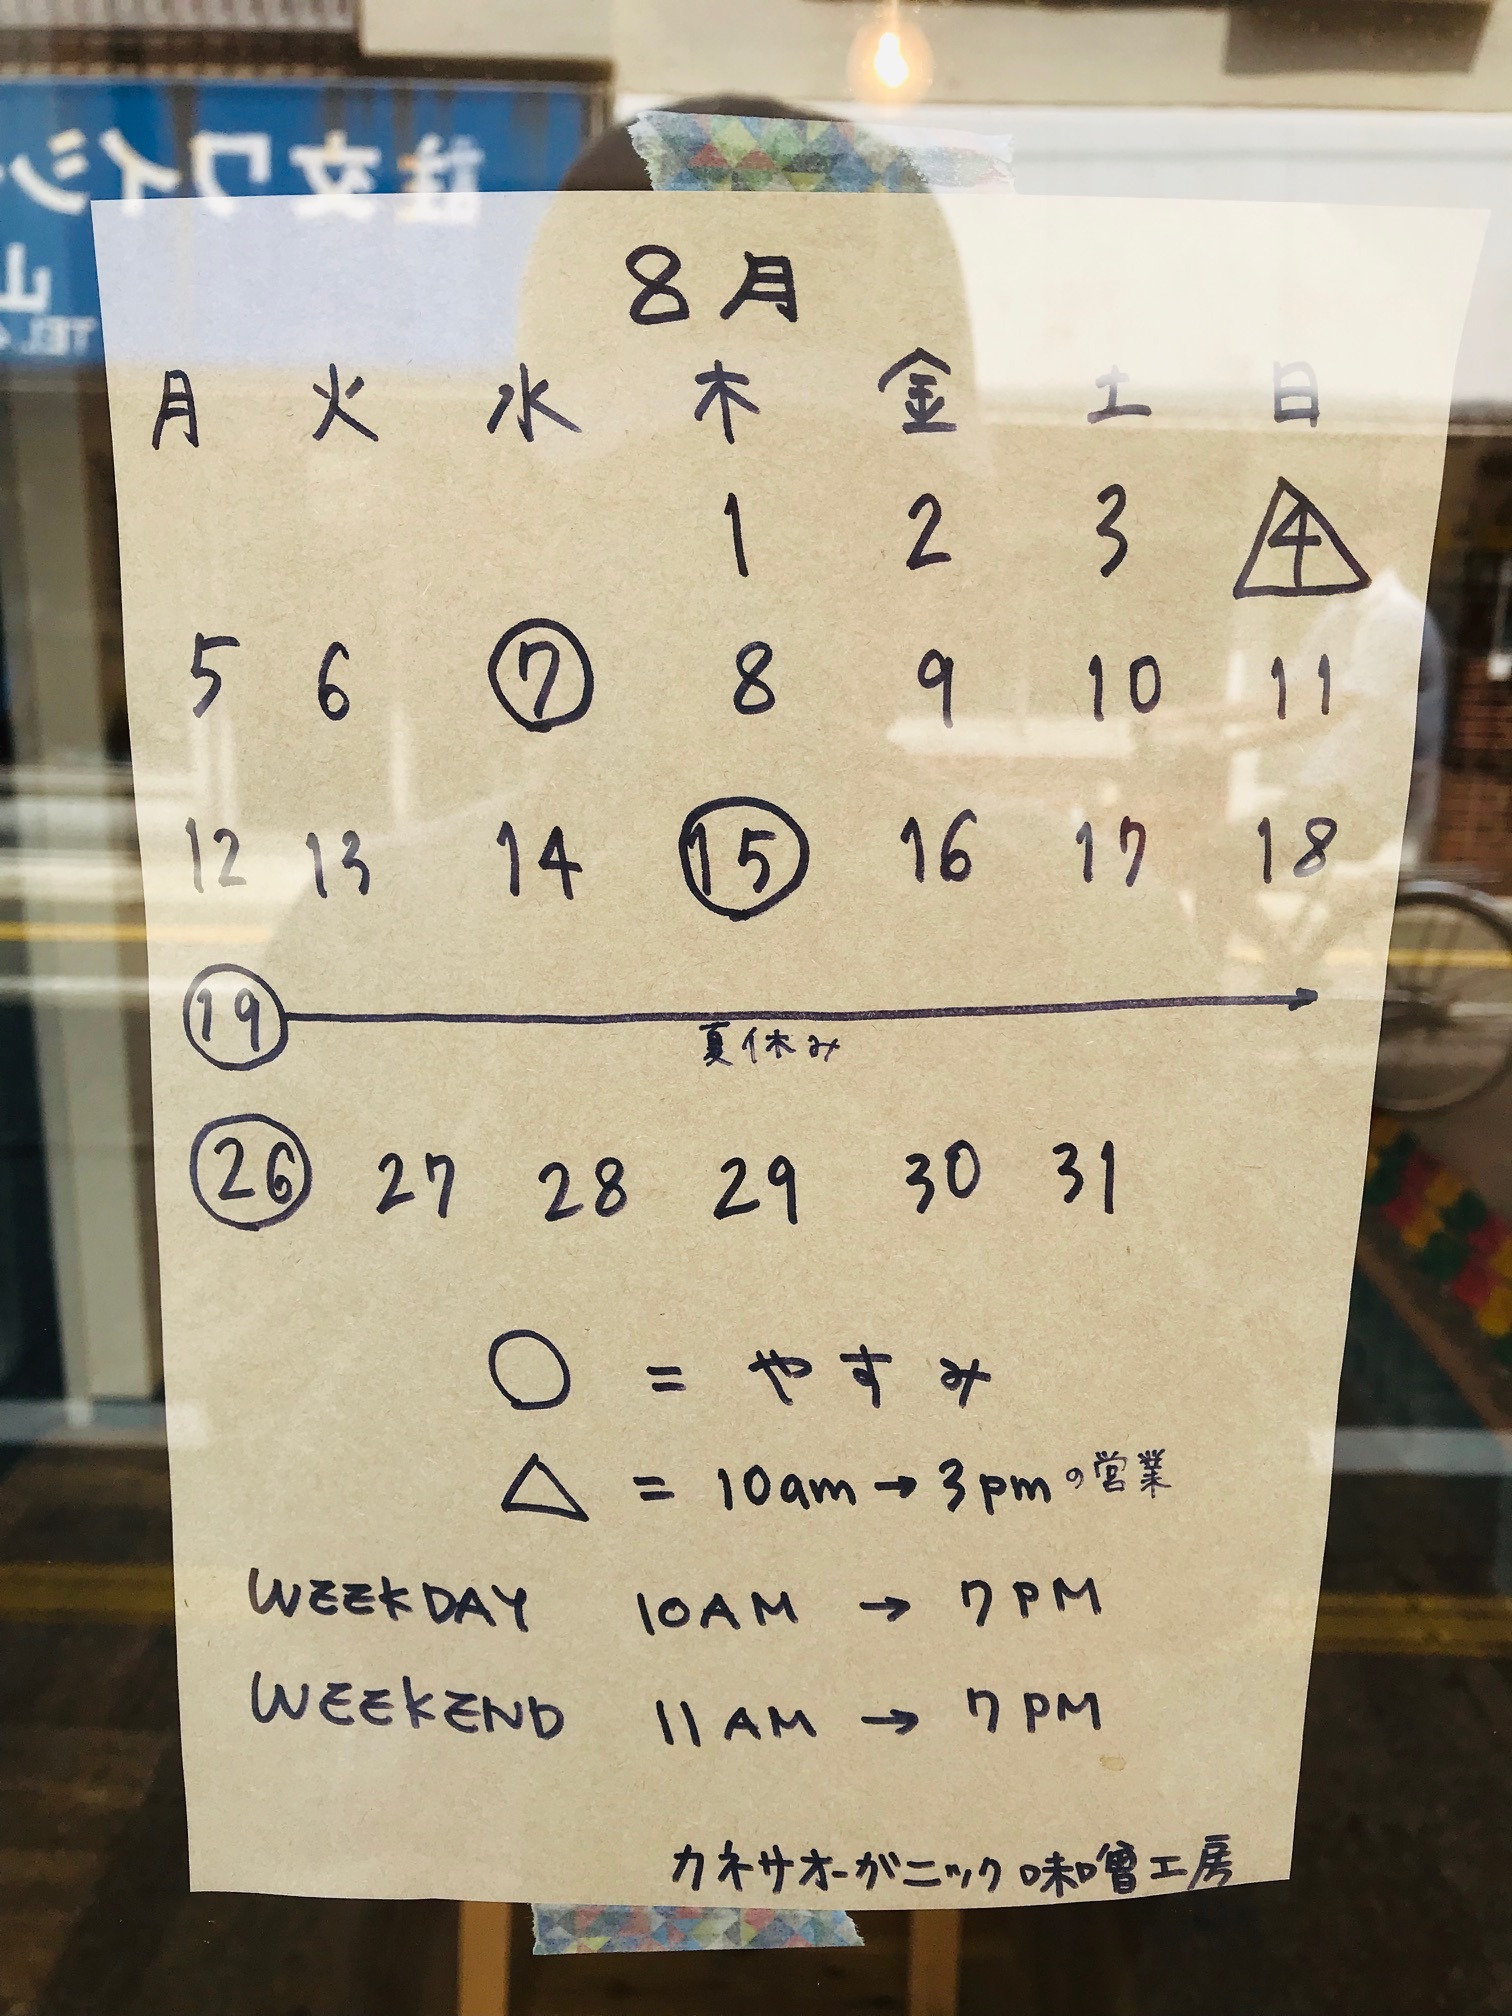 註文ワイシ
山
TEL
8月
月 火 水 木 金 土 日
1 2 3 4
5 6 7 8 9 10 11
12 13 14 15 16 17 18
19
夏休み
26 27 28 29 30 31
○ = やすみ
△ = 10am→3pmの営業
WEEKDAY 10AM → 7PM
WEEKEND 11AM → 7PM
カネサオーガニック味噌工房